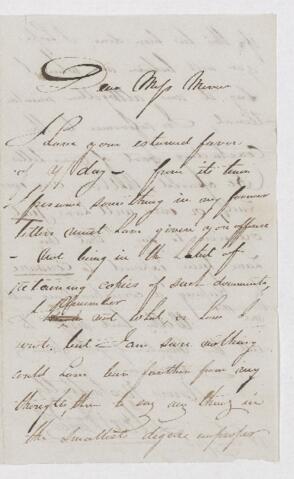 Dear Miss Minor
I have your esteemed favor
of yday - from its tenor
I presume something in my former
letters must have given you offence
- Not being in the habit of
retaining copies of such documents,
I remember not what or how I
wrote. but I am sure nothing
could have been further from my
thoughts, than to say any thing in
the smallest degree improper